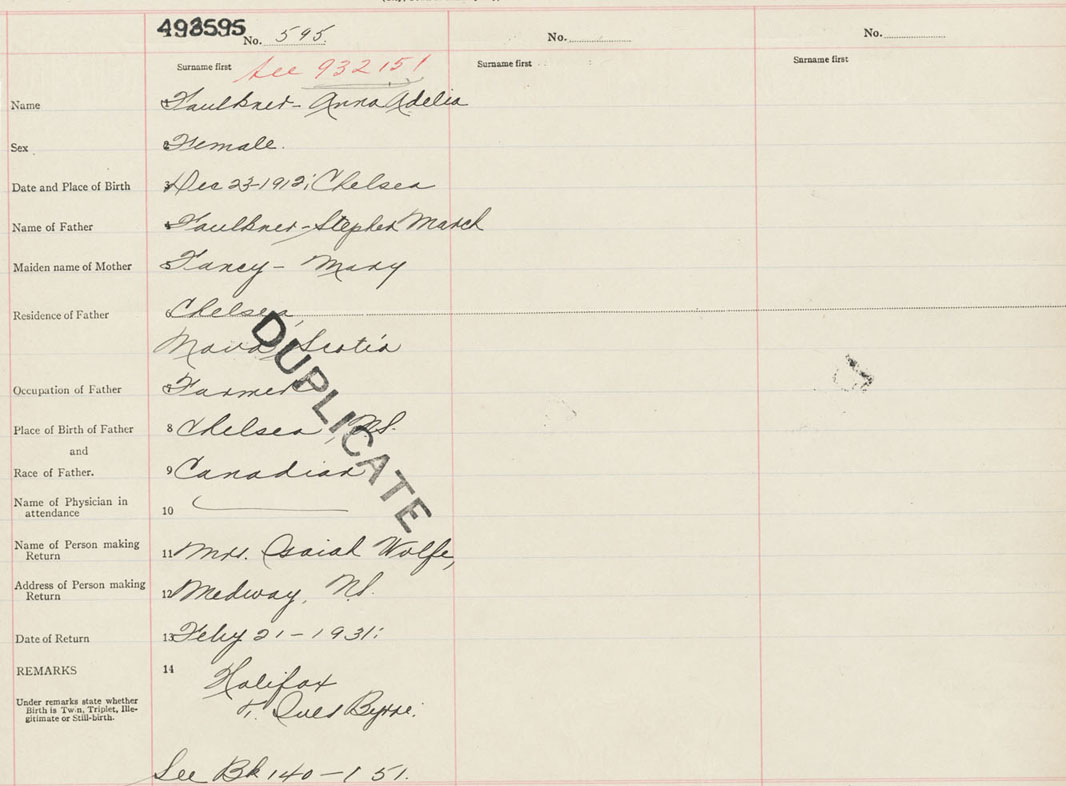 493595 No. 595. No. No.
Surname first See 932151 Surname first Surname first
Name Faulkner - Anna Adelia
Sex 2 Female.
Date and Place of Birth 3 Dec 23-1912; Chelsea
Name of Father 4 Faulkner - Stephen March
Maiden name of Mother 5 Fancy - Mary
Residence of Father Chelsea,
Nova Scotia
Occupation of Father Farmer
Place of Birth of Father 8 Chelsea, N.S.
and
Race of Father. 9 Canadian
Name of Physician in
attendance 10
Name of Person making
Return 11 Mrs. Isaiah Wolfe,
Address of Person making
Return 12 Medway, N.S.
Date of Return 13 Feby 21-1931;
REMARKS 14 Halifax
Under remarks state whether
Birth is Twin, Triplet, Ille-
gitimate or Still-birth.
Byrne.
See Bk 140-151.
DUPLICATE